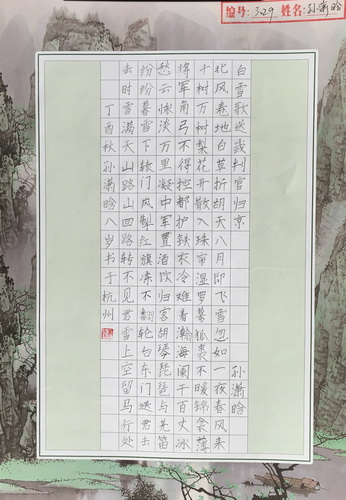 编号: 329 姓名: 孙潇晗
白雪歌送武判官归京 孙潇晗
北风卷地白草折胡天八月即飞雪忽如一夜春风来
千树万树梨花开散入珠帘湿罗幕狐裘不暖锦衾薄
将军角弓不得控都护铁衣冷难着瀚海阑千百丈冰
愁云惨淡万里凝中军置酒饮归客胡琴琵琶与羌笛
纷纷暮雪下辕门风掣红旗冻不翻轮台东门送君去
去时雪满天山路山回路转不见君雪上空留马行处
丁酉秋孙潇晗八岁书于杭州